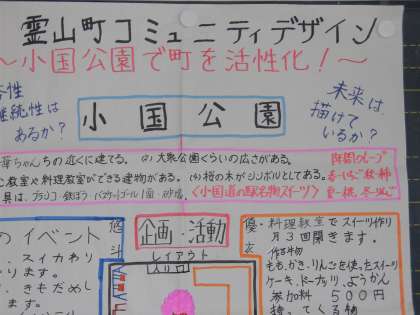 霊山町コミュニティデザイン
〜小国公園で町を活性化！〜
性
継続性は
あるか？
小国公園
未来は
描けて
いるか？
ちの近くに建てる。(2) 大衆公園くらいの広さがある。
教室や料理教室ができる建物がある。(4) 桜の木がシンボルとしてある。
具は、ブランコ・鉄ぼう・バスケットゴール1面・砂場。
〈小国道の駅名物スイーツ〉
春・いちご 秋・柿
夏・桃 冬・りんご
のイベント
スイカわり
ります。
、きもだめし
ます。
悠斗
企画・活動
レイアウト
入り口
優衣
料理教室でスイーツ作り
月3回開きます。
作る物
もも、かき、りんごを使ったスイーツ
ケーキ、ドーナッツ、ようかん
参加料 500円
持ってくる物